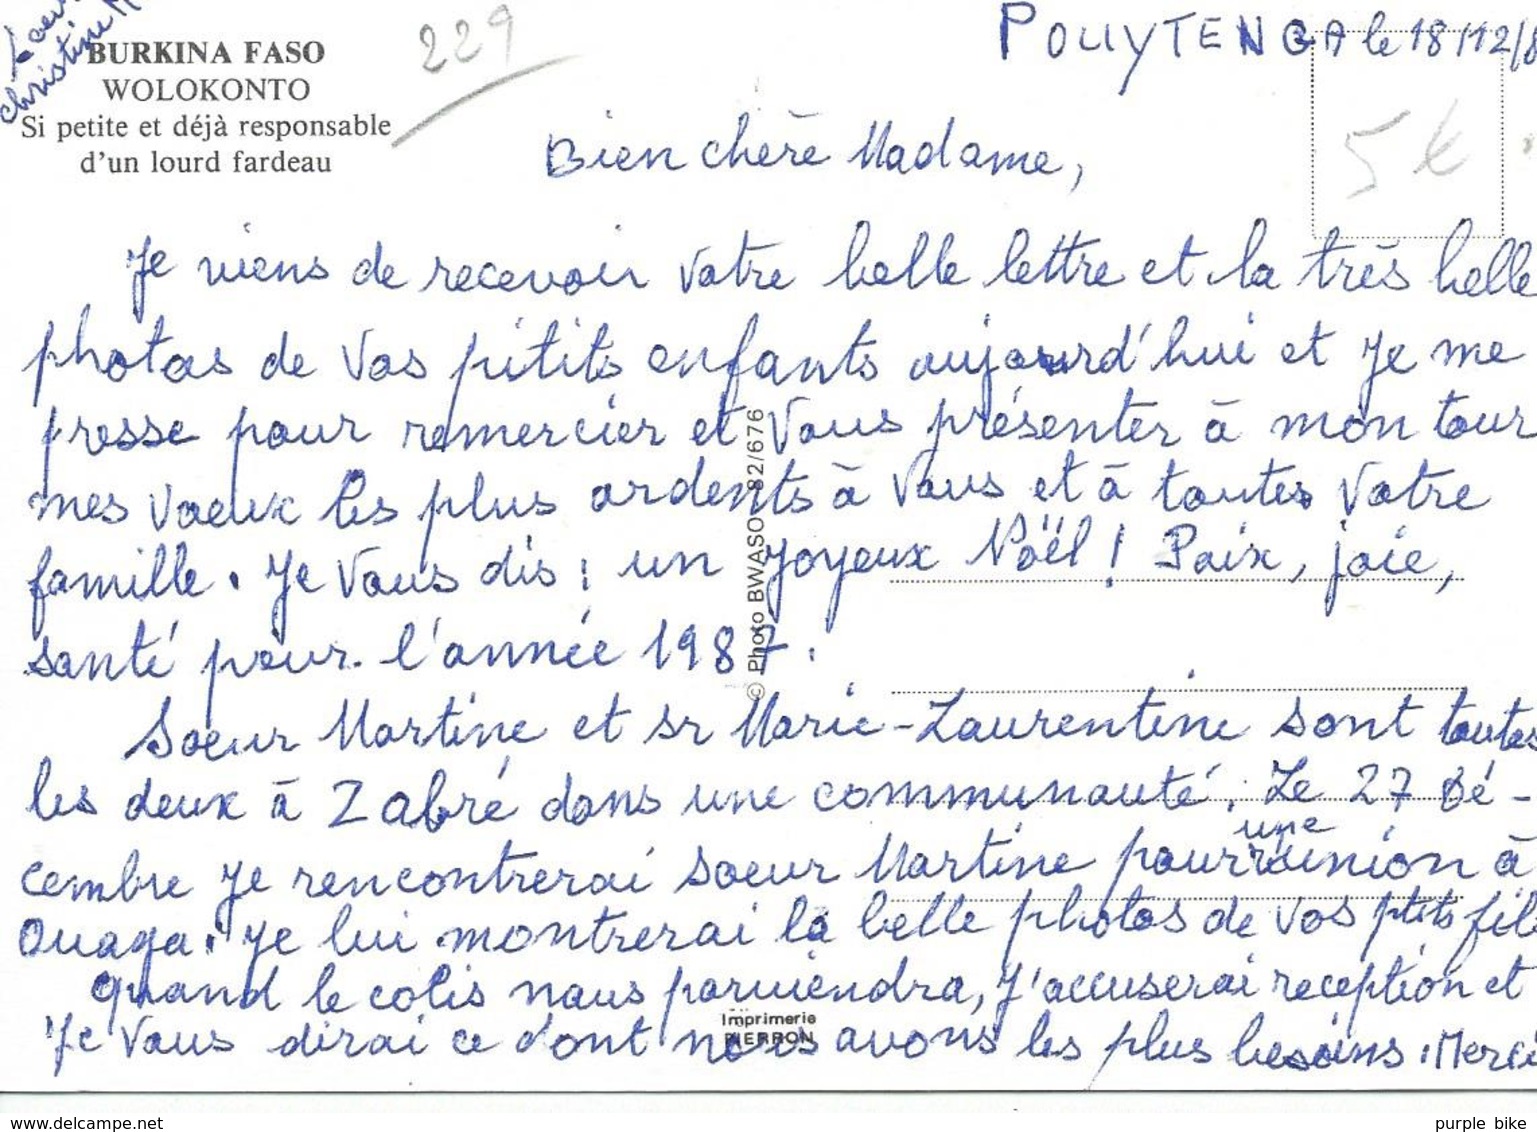 Soeur
christine
BURKINA FASO
WOLOKONTO
Si petite et déjà responsable
d'un lourd fardeau
229
POUYTENGA le 18/12/8
5 €
Bien chère Madame,
Je viens de recevoir votre belle lettre et la très belle
photos de vos pitits enfants aujourd'hui et je me
presse pour remercier et vous présenter à mon tour
mes voeux les plus ardents à vous et à toutes votre
famille. Je vous dis : un joyeux Noël ! Paix, joie,
santé pour l'année 1987.
Soeur Martine et sr Marie-Laurentine sont toutes
les deux à Zabré dans une communauté. Le 27 Dé-
cembre je rencontrerai soeur Martine pour une réunion à
Ouaga. Je lui montrerai la belle photos de vos ptits fils
Quand le colis nous parviendra, j'accuserai reception et
je vous dirai ce dont nous avons les plus besoins. Merci
© Photo BWASO 82/676
Imprimerie
PIERRON
www.delcampe.net
purple bike